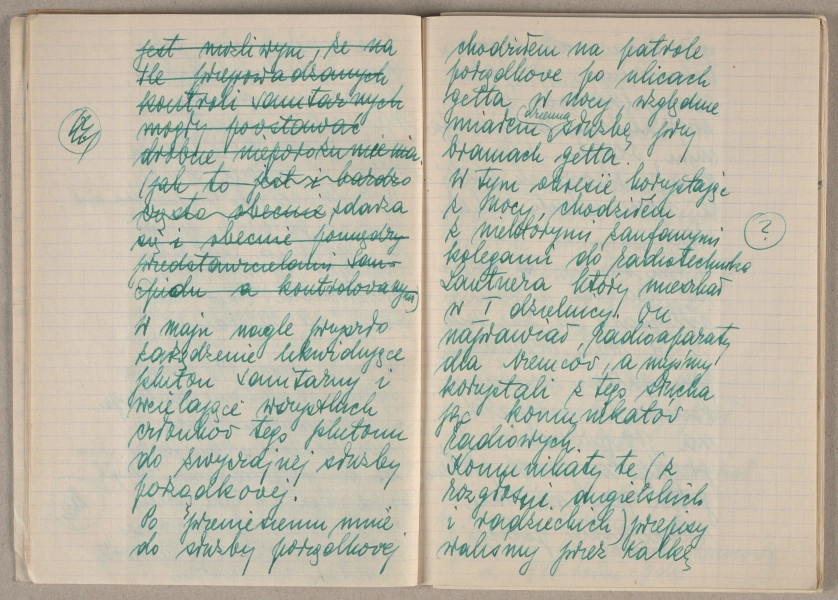 jest możliwym, że na
tle przeprowadzanych
kontroli sanitarnych
mogły powstawać
drobne nieporozumienia.
(jak to jest i bardzo
często obecnie zdarza
się i obecnie pomiędzy
przedstawicielami San-
epidu a kontrolowanymi)
W maju nagle przyszło
zarządzenie likwidujące
pluton sanitarny i
wcielające wszystkich
członków tego plutonu
do zwyczajnej służby
porządkowej.
Po przeniesieniu mnie
do służby porządkowej
chodziłem na patrole
porządkowe po ulicach
getta w nocy, względnie
miałem dzienną służbę przy
bramach getta.
W tym okresie korzystając
z nocy, chodziłem
z niektórymi zaufanymi
kolegami do radiotechnika
Lautnera który mieszkał
w I dzielnicy. On
naprawiał radioaparaty
dla Niemców, a myśmy
korzystali z tego słucha
jąc komunikatów
radiowych.
Komunikaty te (z
rozgłośni angielskich
i radzieckich) przepisy
waliśmy przez kalkę
?